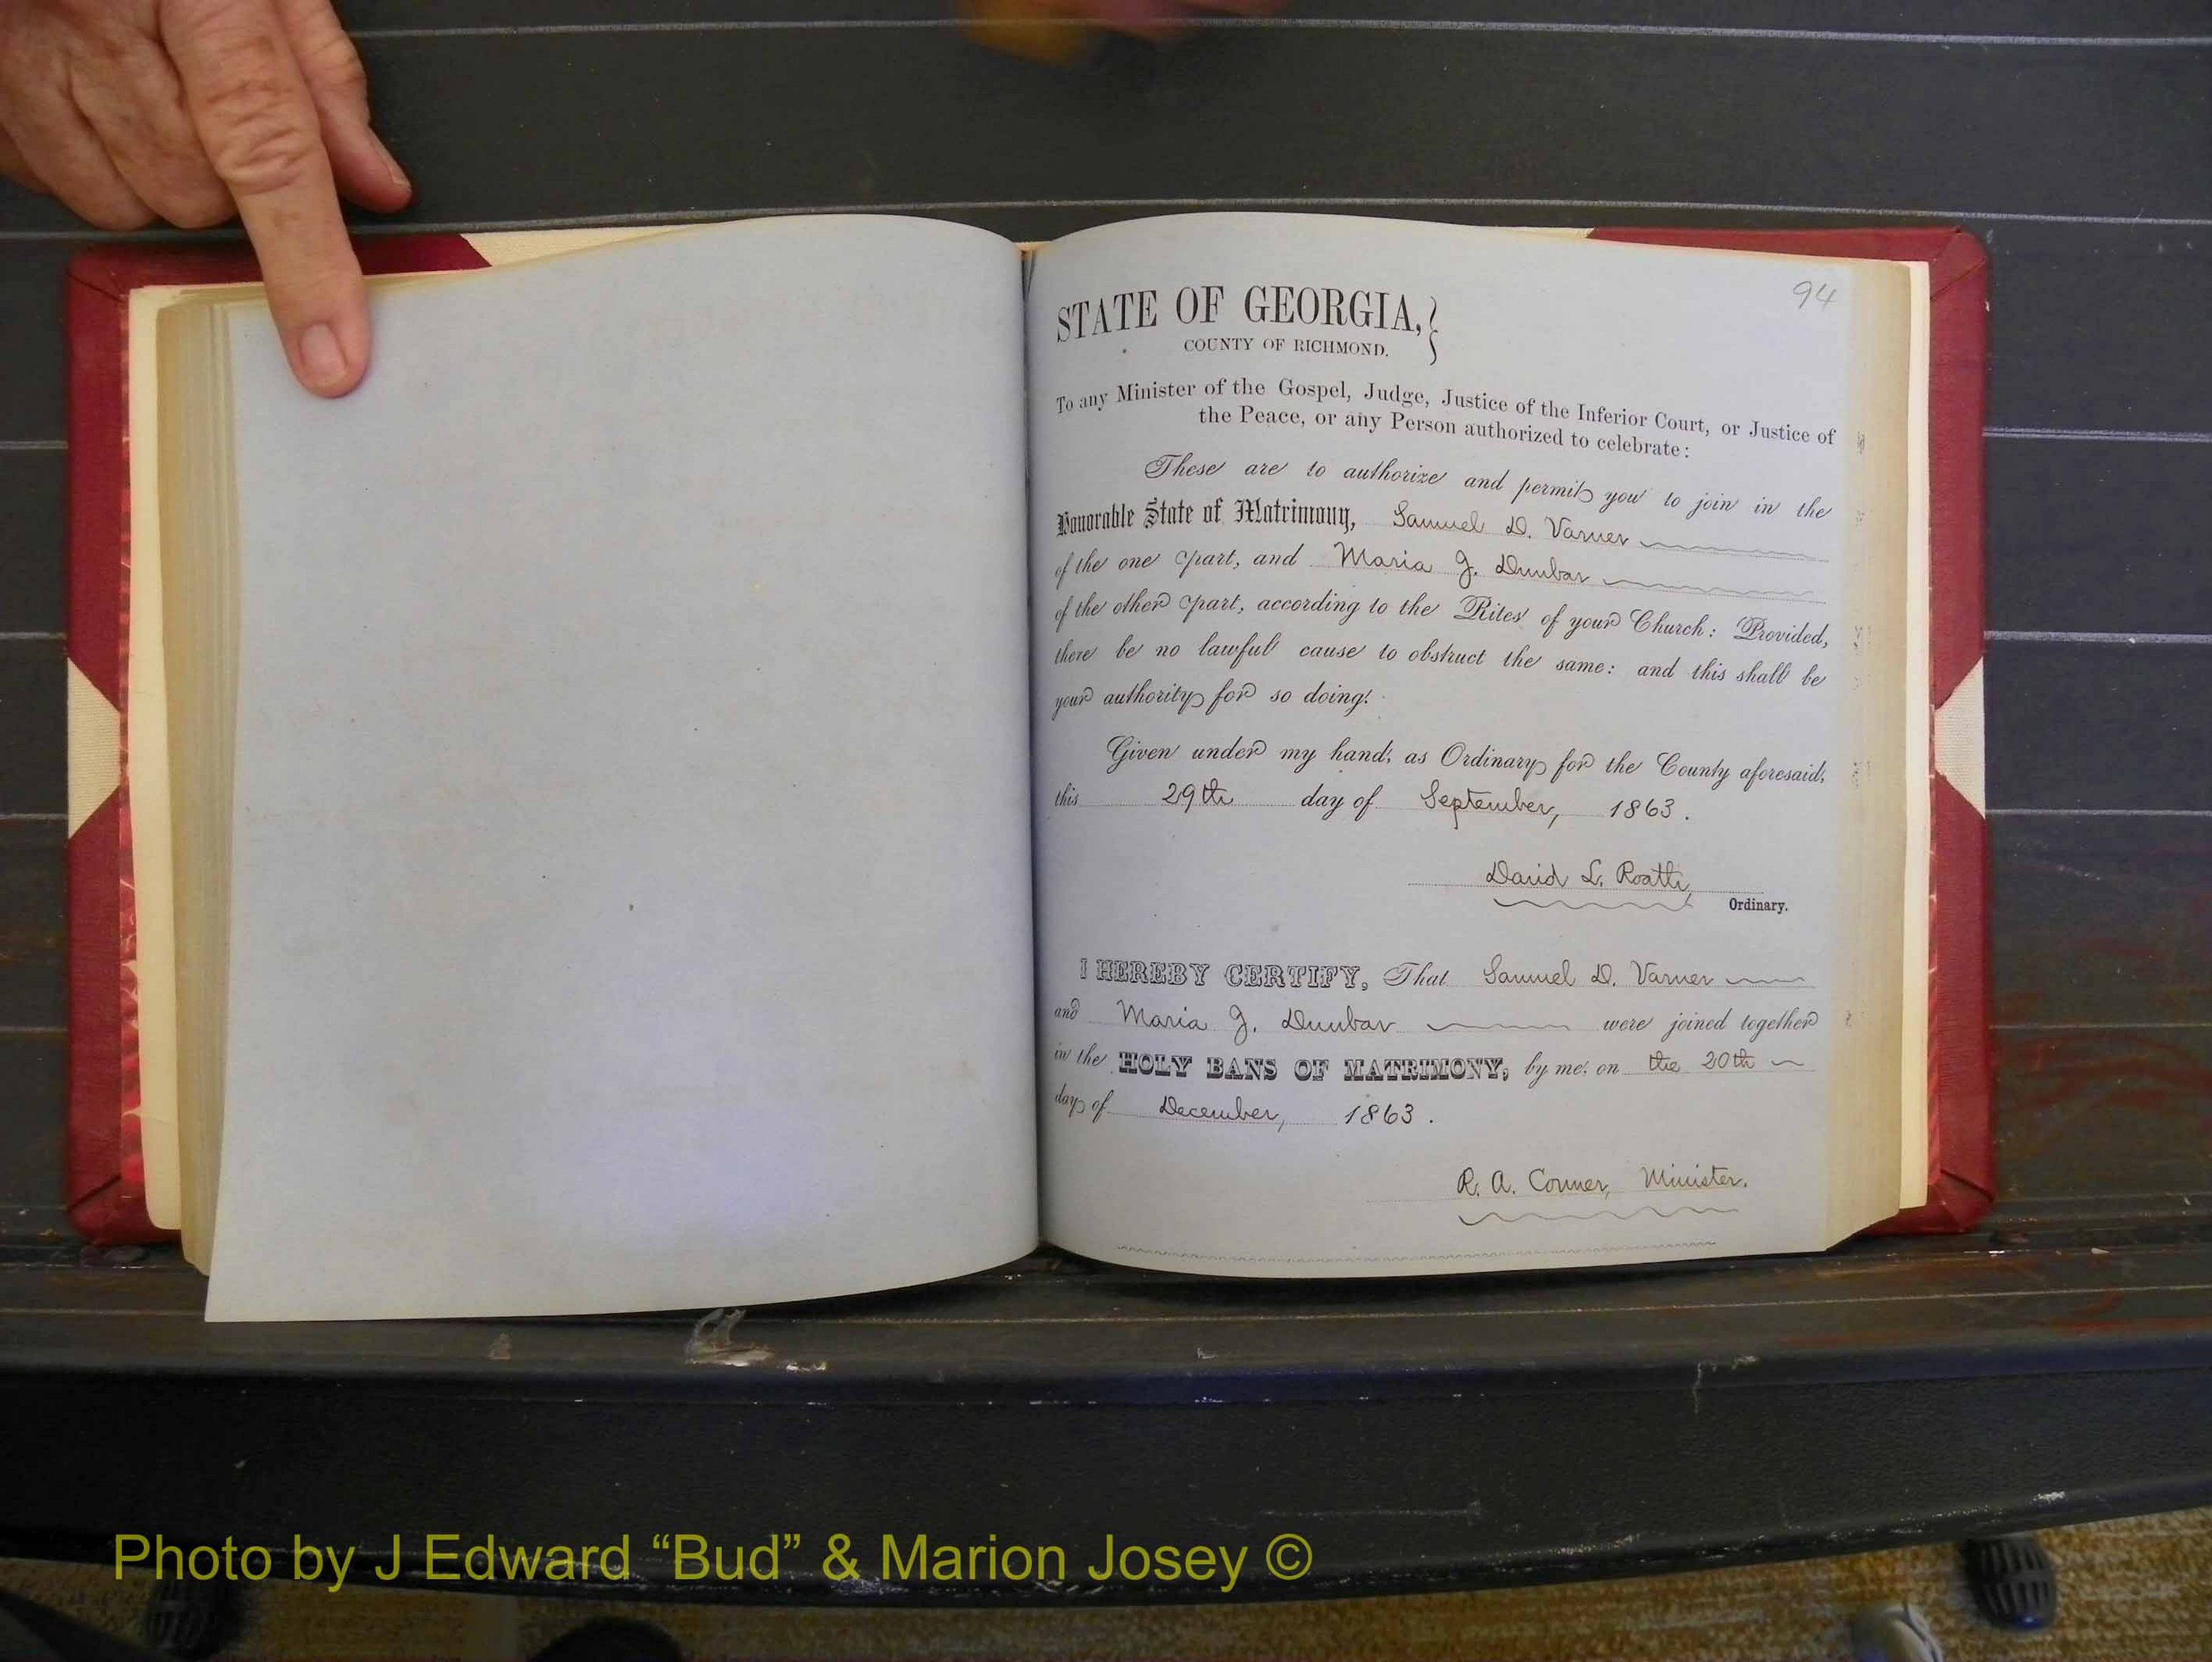 94
STATE OF GEORGIA,
COUNTY OF RICHMOND.
To any Minister of the Gospel, Judge, Justice of the Inferior Court, or Justice of
the Peace, or any Person authorized to celebrate:
These are to authorize and permit you to join in the
Honorable State of Matrimony, Samuel D. Varner
of the one part, and Maria J. Dunbar
of the other part, according to the Rites of your Church: Provided,
there be no lawful cause to obstruct the same: and this shall be
your authority for so doing.
Given under my hand, as Ordinary for the County aforesaid,
this 29th day of September, 1863.
David L. Roath,
Ordinary.
I HEREBY CERTIFY, That Samuel D. Varner
and Maria J. Dunbar were joined together
in the HOLY BANS OF MATRIMONY, by me, on the 20th
day of December, 1863.
R. A. Conner, Minister.
Photo by J Edward “Bud” & Marion Josey ©